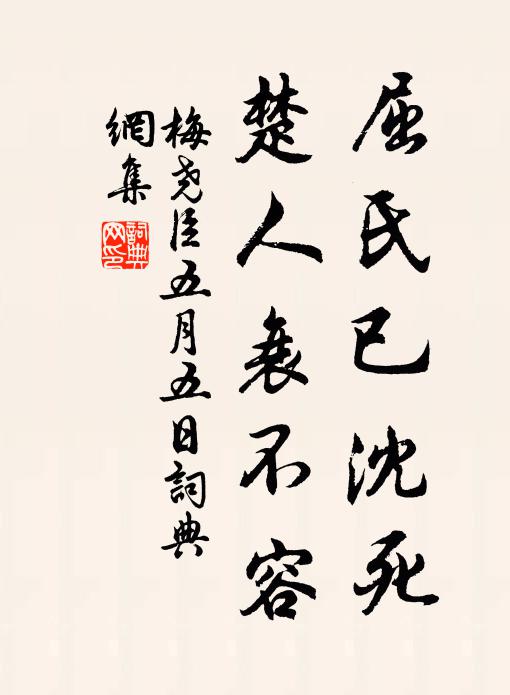 屈氏已沈死
楚人哀不容
梅尧臣五月五日詞典
網集
詞典网印